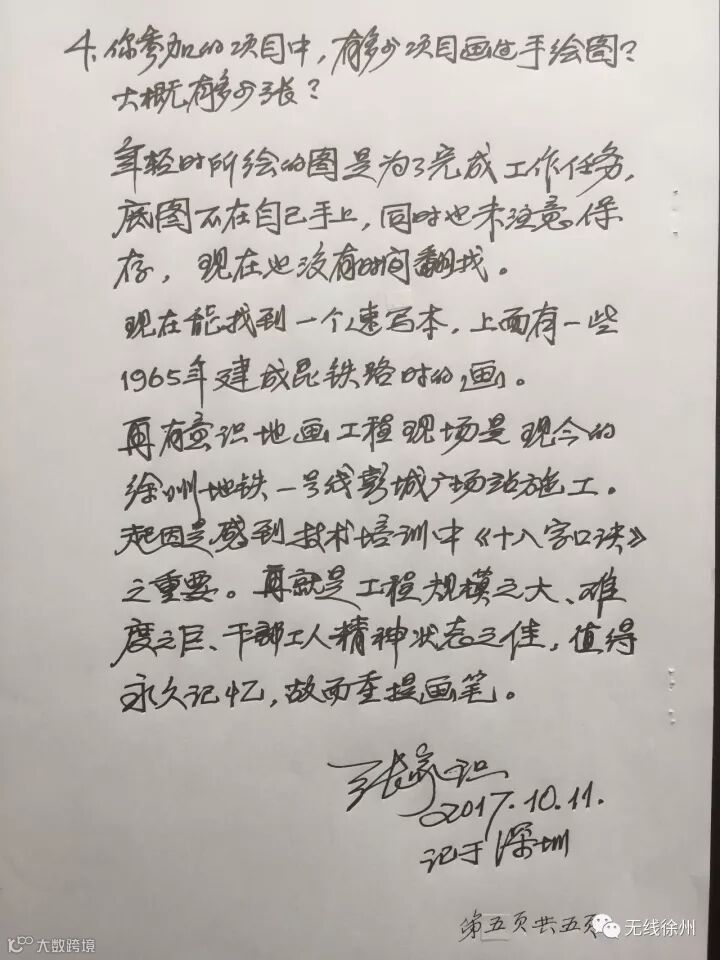 4. 你参加的项目中，有多少项目画过手绘图？
大概有多少张？
年轻时所绘的图是为了完成工作任务，
底图不在自己手上，同时也未注意保
存，现在也没有时间翻找。
现在能找到一个速写本，上面有一些
1965年建成昆铁路时的画。
再有意识地画工程现场是现今的
徐州地铁一号线彭城广场站施工。
起因是感到技术培训中《十八字口诀》
之重要。再就是工程规模之大、难
度之巨、干部工人精神状态之佳，值得
永久记忆，故而重提画笔。
张家识
2017.10.11.
记于深圳
第五页共五页
无线徐州
大数跨境